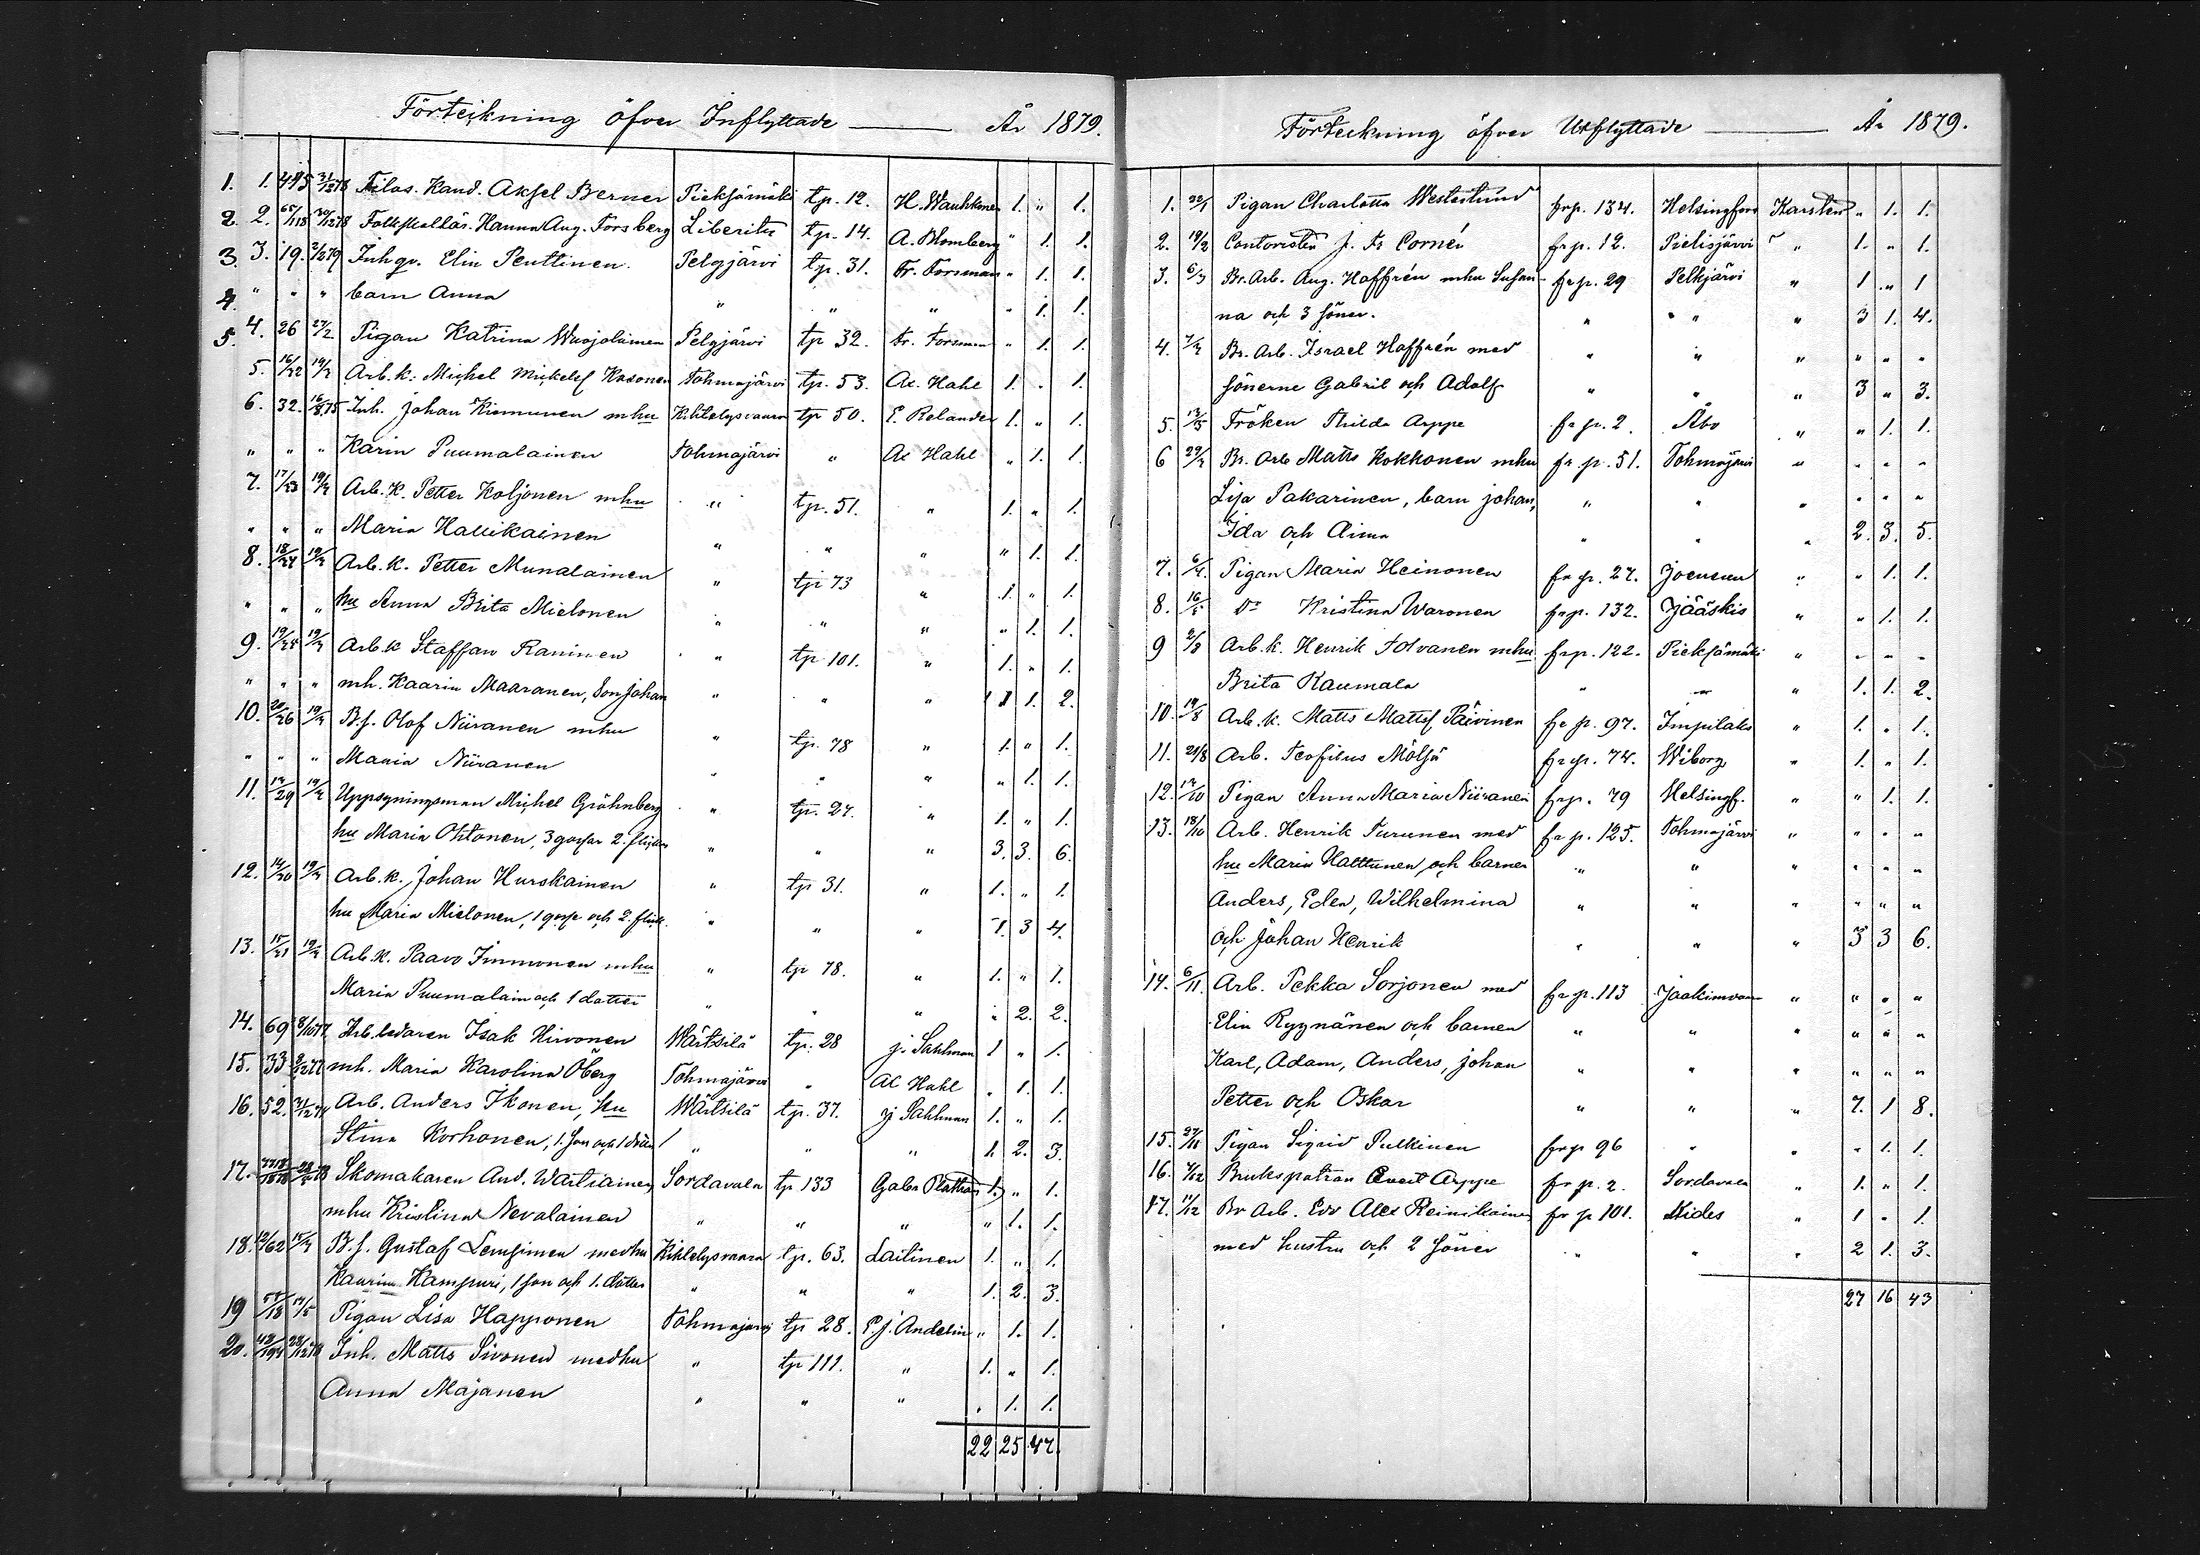 Förteckning öfver Inflyttade — År 1879.
1. 1. 495 31/12 78 Filos. Kand. Aksel Berner Pieksämäki tp. 12. H. Wauhkonen 1. " 1.
2. 2. 65/118 30/12 78 Folkskollär. Hanna Aug. Forsberg Liberits tp. 14. A. Blomberg " 1. 1.
3. 3. 19. 2/2 79 Inhqv. Elin Penttinen. Pelgjärvi tp. 31. Fr. Forsman " 1. 1.
4. " " " barn Anna " " " " 1. 1.
5. 4. 26 27/2 Pigan Katrina Wuojolainen Pelgjärvi tp 32. Fr. Forsman " 1. 1.
5. 16/22 19/3 Arb. k. Michel Mickelss Kosonen Tohmajärvi tp. 53. Ac. Hahl 1. " 1.
6. 32. 16/8 75 Inh. Johan Kinnunen mhu Kihtelysvaara tp 50. E. Relander 1. " 1.
" " " Karin Puumalainen Tohmajärvi " Ac Hahl " 1. 1.
7. 17/23 19/3 Arb. K. Petter Koljonen mhu " tp. 51. " 1. " 1.
" " " Maria Hallikainen " " " " 1. 1.
8. 18/24 19/3 Arb. K. Petter Munalainen " tp 73 " 1. " 1.
" " " hu Anna Brita Mielonen " " " " 1. 1.
9. 19/25 19/3 Arb. k Staffan Raninen " tp 101. " 1. " 1.
" " " mh. Kaarin Maaranen, Son Johan " " " 1 1. 2.
10. 20/26 19/3 B.f. Olof Niiranen mhu " tp. 78 " 1. " 1.
" " " Maria Niiranen " " " " 1. 1.
11. 13/29 19/3 Uppsyningsman Michel Gröhnberg " tp. 27. " 1. " 1.
hu Maria Ohtonen, 3 gossar 2. flickor " " " 3. 3. 6.
12. 14/30 19/3 Arb. k. Johan Hurskainen " tp 31. " 1. " 1.
hu Maria Mielonen, 1 gosse och 2. flick. " " " 1. 3 4.
13. 15/31 19/3 Arb. K. Paavo Immonen mhu " tp 78. " 1. " 1.
Maria Puumalain och 1 dotter " " " " 2. 2.
14. 69 8/10 77 Arb. ledaren Isak Hirvonen Wärtsilä tp. 28 J. Sahlman 1 " 1.
15. 33 2/12 77 mh. Maria Karolina Öberg Tohmajärvi " Ac Hahl " 1. 1.
16. 52. 31/12 78 Arb. Anders Ikonen, hu Wärtsilä tp. 37. J Sahlman 1. " 1.
Stina Korhonen, 1. son och 1 dotter " " " 1. 2. 3.
17. Skomakaren And. Wartiainen Sordavala tp 133 Gabr Plathan 1. " 1.
mhu Kristina Nevalainen " " " " 1. 1.
18. 12/62 17/4 B.f. Gustaf Lemsinen medhu Kihtelysvaara tp. 63. Laitinen 1. " 1.
Kaarina Hampuri, 1 son och 1. dotter " " " 1. 2. 3.
19 17/5 Pigan Lisa Happonen Tohmajärvi tp 28. P J. Andelin " 1. 1.
20. Inh. Matts Sivonen medhu " tp 111. " 1. " 1.
Anna Majanen " " " " 1. 1.
22 25 47.
Förteckning öfver Utflyttade — År 1879.
1. 22/1 Pigan Charlotta Westerlund frp. 134. Helsingfors Karsten " 1. 1.
2. 19/2 Contoristen J. Fr Cornér fr p. 12. Pielisjärvi " 1. " 1.
3. 6/3 Br. Arb. Aug. Hoffrén mhu Susan- fr p. 29 Pelkjärvi " 1 " 1
na och 3 söner. " " " 3 1. 4.
4. 7/3 Br. Arb. Israel Hoffrén med " " " " " "
sönerne Gabriel och Adolf " " " 3 " 3.
5. 13/3 Fröken Thilda Arppe fr p. 2. Åbo " " 1. 1.
6 29/3 Br. Arb Matts Kokkonen mhu fr p. 51. Tohmajärvi " " " "
Lisa Pakarinen, barn Johan, " " " " " "
Ida och Aina " " " 2. 3. 5.
7. 6/4. Pigan Maria Heinonen fr p. 27. Joensuu " " 1. 1.
8. 16/5 Do Kristina Waronen fr p. 132. Jääskis " " 1. 1.
9 2/8 Arb. k. Henrik Tolvanen mhu fr p. 122. Pieksämäki " " " "
Brita Kaumala " " " 1. 1. 2.
10. 19/8 Arb. k. Matts Mattsf Päivinen fr p. 97. Impilaks " 1. " 1.
11. 21/8 Arb. Teofilus Mölsä fr p. 74. Wiborg " 1. " 1.
12. 13/10 Pigan Anna Maria Niiranen fr p. 79 Helsingf. " " 1. 1.
13. 18/10 Arb. Henrik Turunen med fr p. 125. Tohmajärvi " " " "
hu Maria Hattunen och barnen " " " " " "
Anders, Eden, Wilhelmina " " " " " "
och Johan Henrik " " " 3 3 6.
14. 6/11. Arb. Pekka Sorjonen med fr p. 113 Jaakimvaara " " " "
Elin Ryynänen och barnen " " " " " "
Karl, Adam, Anders, Johan " " " " " "
Petter och Oskar " " " 7. 1 8.
15. 27/11 Pigan Sigrid Pulkinen fr p 96 " " " 1. 1.
16. 7/12 Brukspatron Evert Arppe fr p. 2. Sordavala " 1. " 1.
17. 11/12 Br Arb. Edv Alex Reinikainen fr p 101. Kides " 1 " 1.
med hustru och 2 söner " " " 2 1. 3.
27 16 43